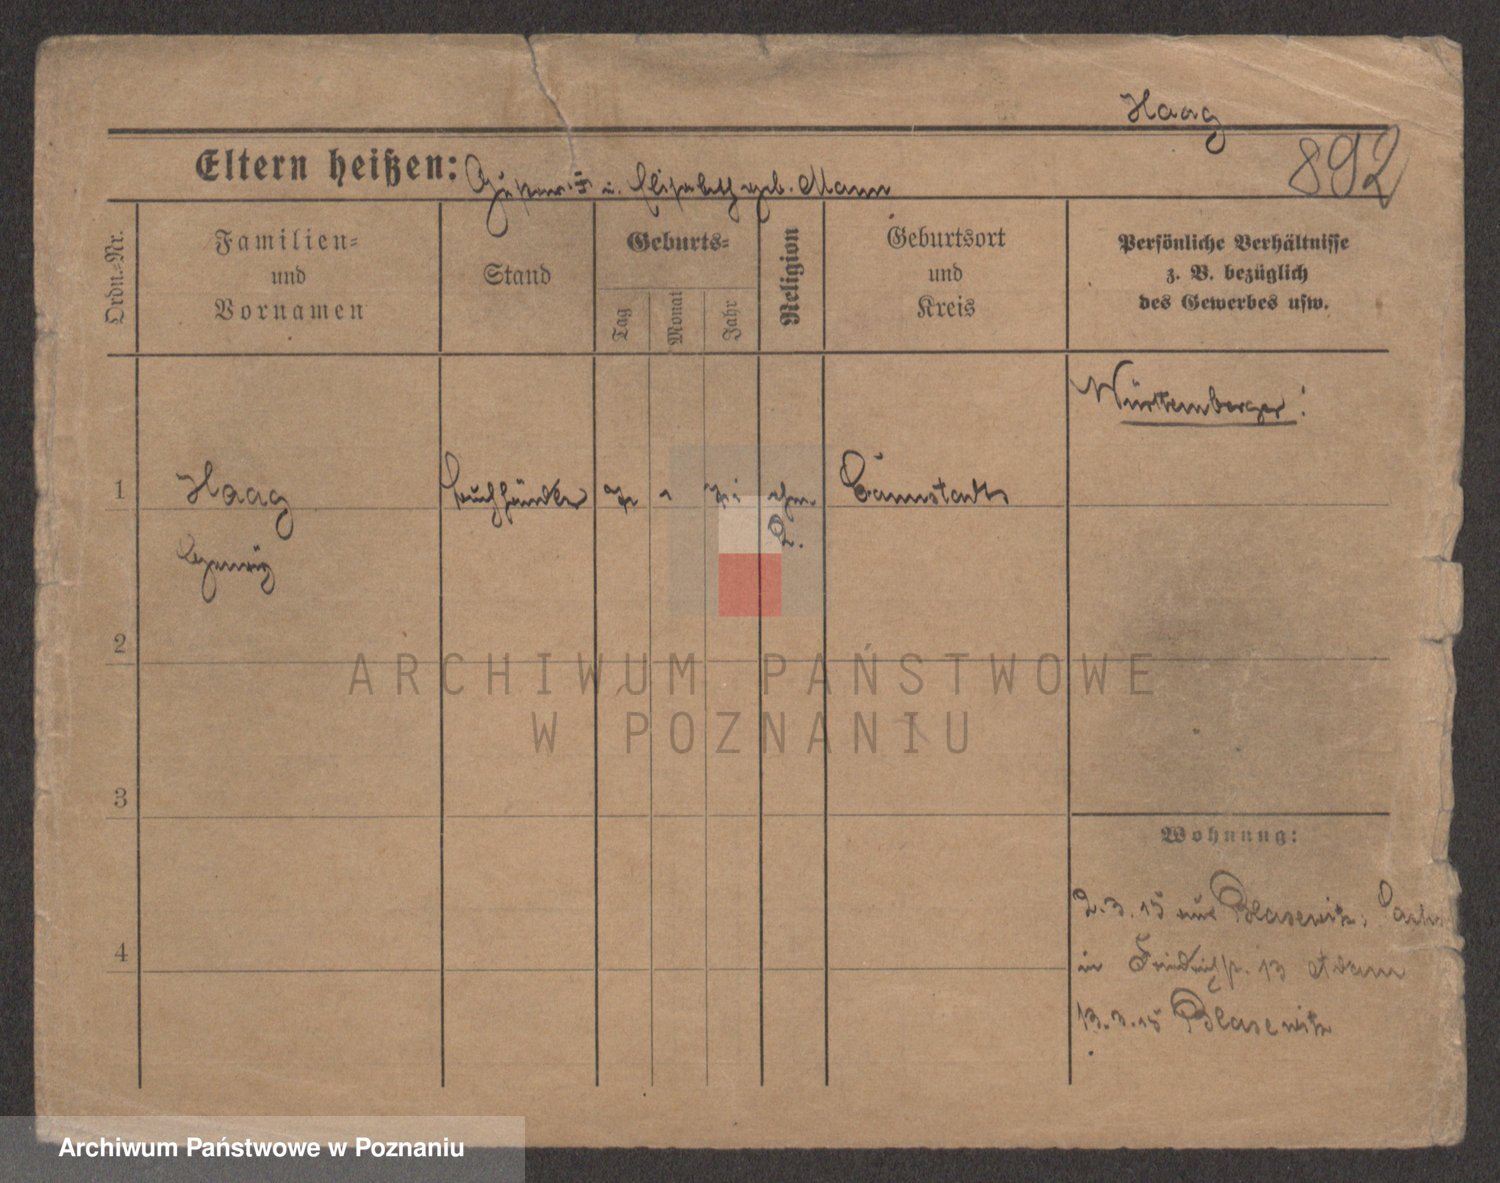 Haag
892
Eltern heißen: Gustav u. Elisabeth geb. Mann
Ordn.=Nr.
Familien=
und
Vornamen
Stand
Geburts=
Tag
Monat
Jahr
Religion
Geburtsort
und
Kreis
Persönliche Verhältnisse
z. B. bezüglich
des Gewerbes usw.
Württemberger!
1
Haag
Buchhändler
Cannstadt
2
ARCHIWUM PAŃSTWOWE
W POZNANIU
3
Wohnung:
2.3.15 aus Blasewitz,
4
in Friedrichstr. 13 Adam
13.3.15 Blasewitz
Archiwum Państwowe w Poznaniu